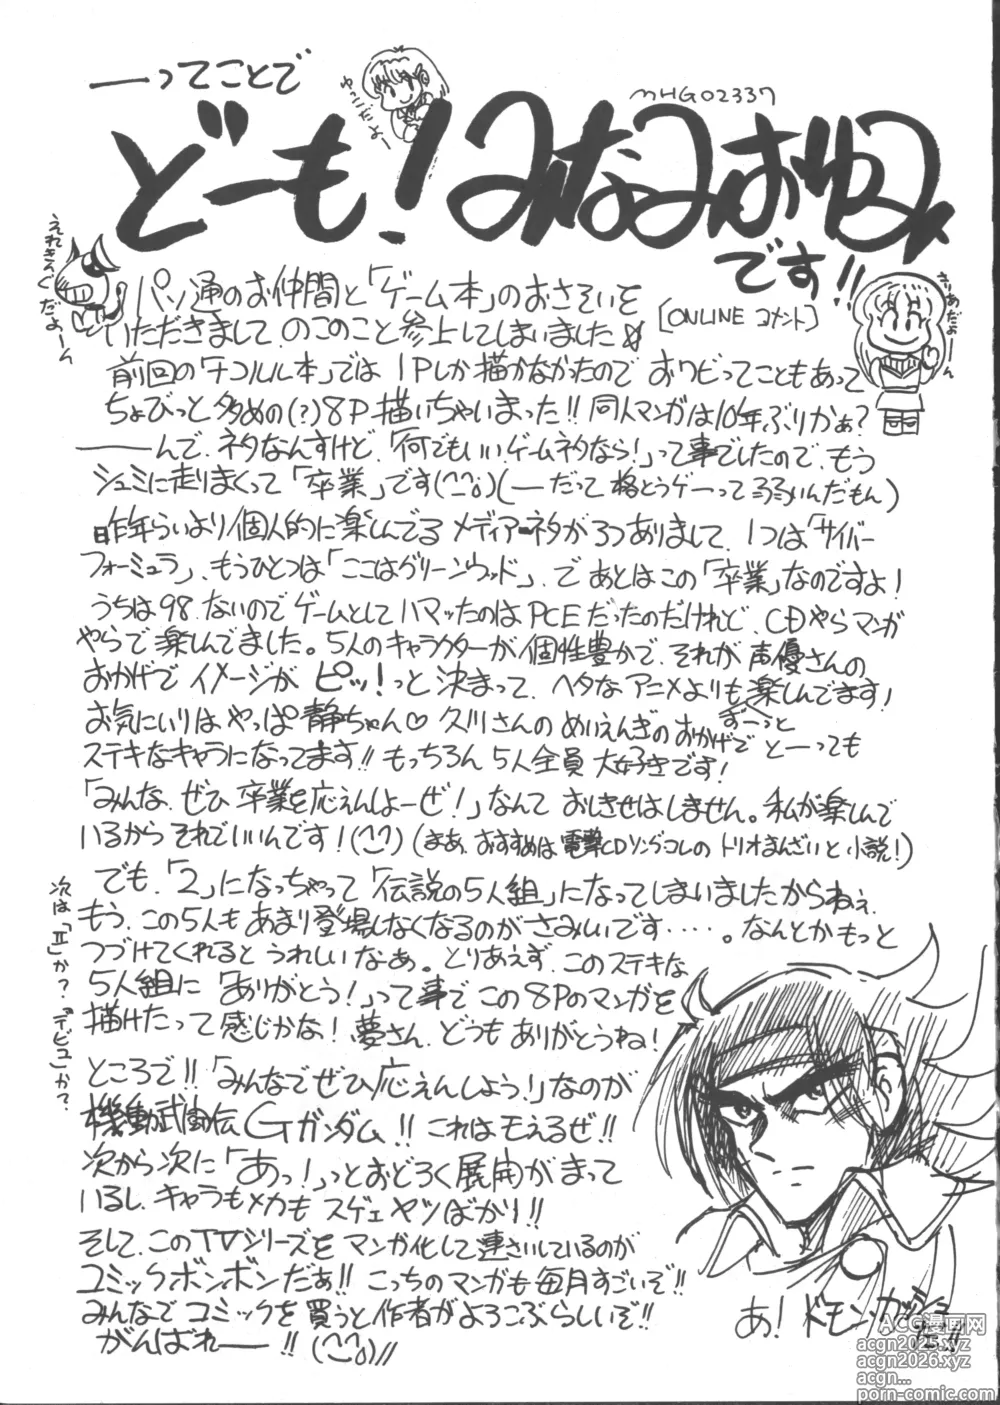 ーってことで
ゆっこだよー
MHG02337
どーも!みなみおゆみ
です!!
えれきんぐだよーん
きぁだよーーん
パソ通のお仲間と「ゲーム本」のおさそいを
いただきまして のこのこと参上してしまいました
[ONLINE コメント]
前回の「ナコルル本」では 1Pしか描かなかったので おワビってこともあって
ちょびっと多めの(?)8P描いちゃいまった!!同人マンガは10年ぶりかぁ?
――んで、ネタなんすけど、「何でもいいゲームネタなら!」って事でしたので、もう
シュミに走りまくって「卒業」です(^^;)(―だって格とうゲーって弱いんだもん)
昨年らいより個人的に楽しんでるメディアネタが3つありまして、1つは「サイバー
フォーミュラ」、もうひとつは「ここはグリーンウッド」、で あとはこの「卒業」なのですよ!
うちは98、ないのでゲームとしてハマッたのはPCEだったのだけれど、CDやらマンガ
やらで楽しんでました。5人のキャラクターが個性豊かで、それが声優さんの
おかげでイメージがピッ!っと決まって、ヘタなアニメよりも楽しんでます!
お気にいりはやっぱ静ちゃん♡久川さんのめいえんぎのおかげで ずーっと とーっても
ステキなキャラになってます!!もっちろん5人全員大好きです!
「みんな、ぜひ卒業を応えんしよーぜ!」なんて おしきせはしません。私が楽しんで
いるからそれでいいんです!(^^)(まあ、おすすめは電撃CDソングコレのトリオまんざいと小説!)
でも、「2」になっちゃって「伝説の5人組」になってしまいましたからねぇ、
もう、この5人もあまり登場しなくなるのがさみしいです・・・・。なんとかもっと
つづけてくれるとうれしいなあ。とりあえず、このステキな
5人組に「ありがとう!」って事でこの8Pのマンガを
描けたって感じかな!夢さん、どうもありがとうね!
次は「Ⅱ」か?「デビュー」か?
ところで!!「みんなでぜひ応えんしよう!」なのが
機動武闘伝Gガンダム!!これはモえるぜ!!
次から次に「あっ!」っとおどろく展開がまって
いるし、キャラもメカもスゲェヤツばかり!!
そして、このTVシリーズをマンガ化して連さいしているのが
コミックボンボンだぁ!!こっちのマンガも毎月すごいぞ!!
みんなでコミックを買うと作者がよろこぶらしいぞ!!
がんばれー!!(^^;)//
あ!ドモン・カッシュ
だ!!
ACG漫画网
acgn2025.xyz
acgn2026.xyz
acgn...
porn-comic.com